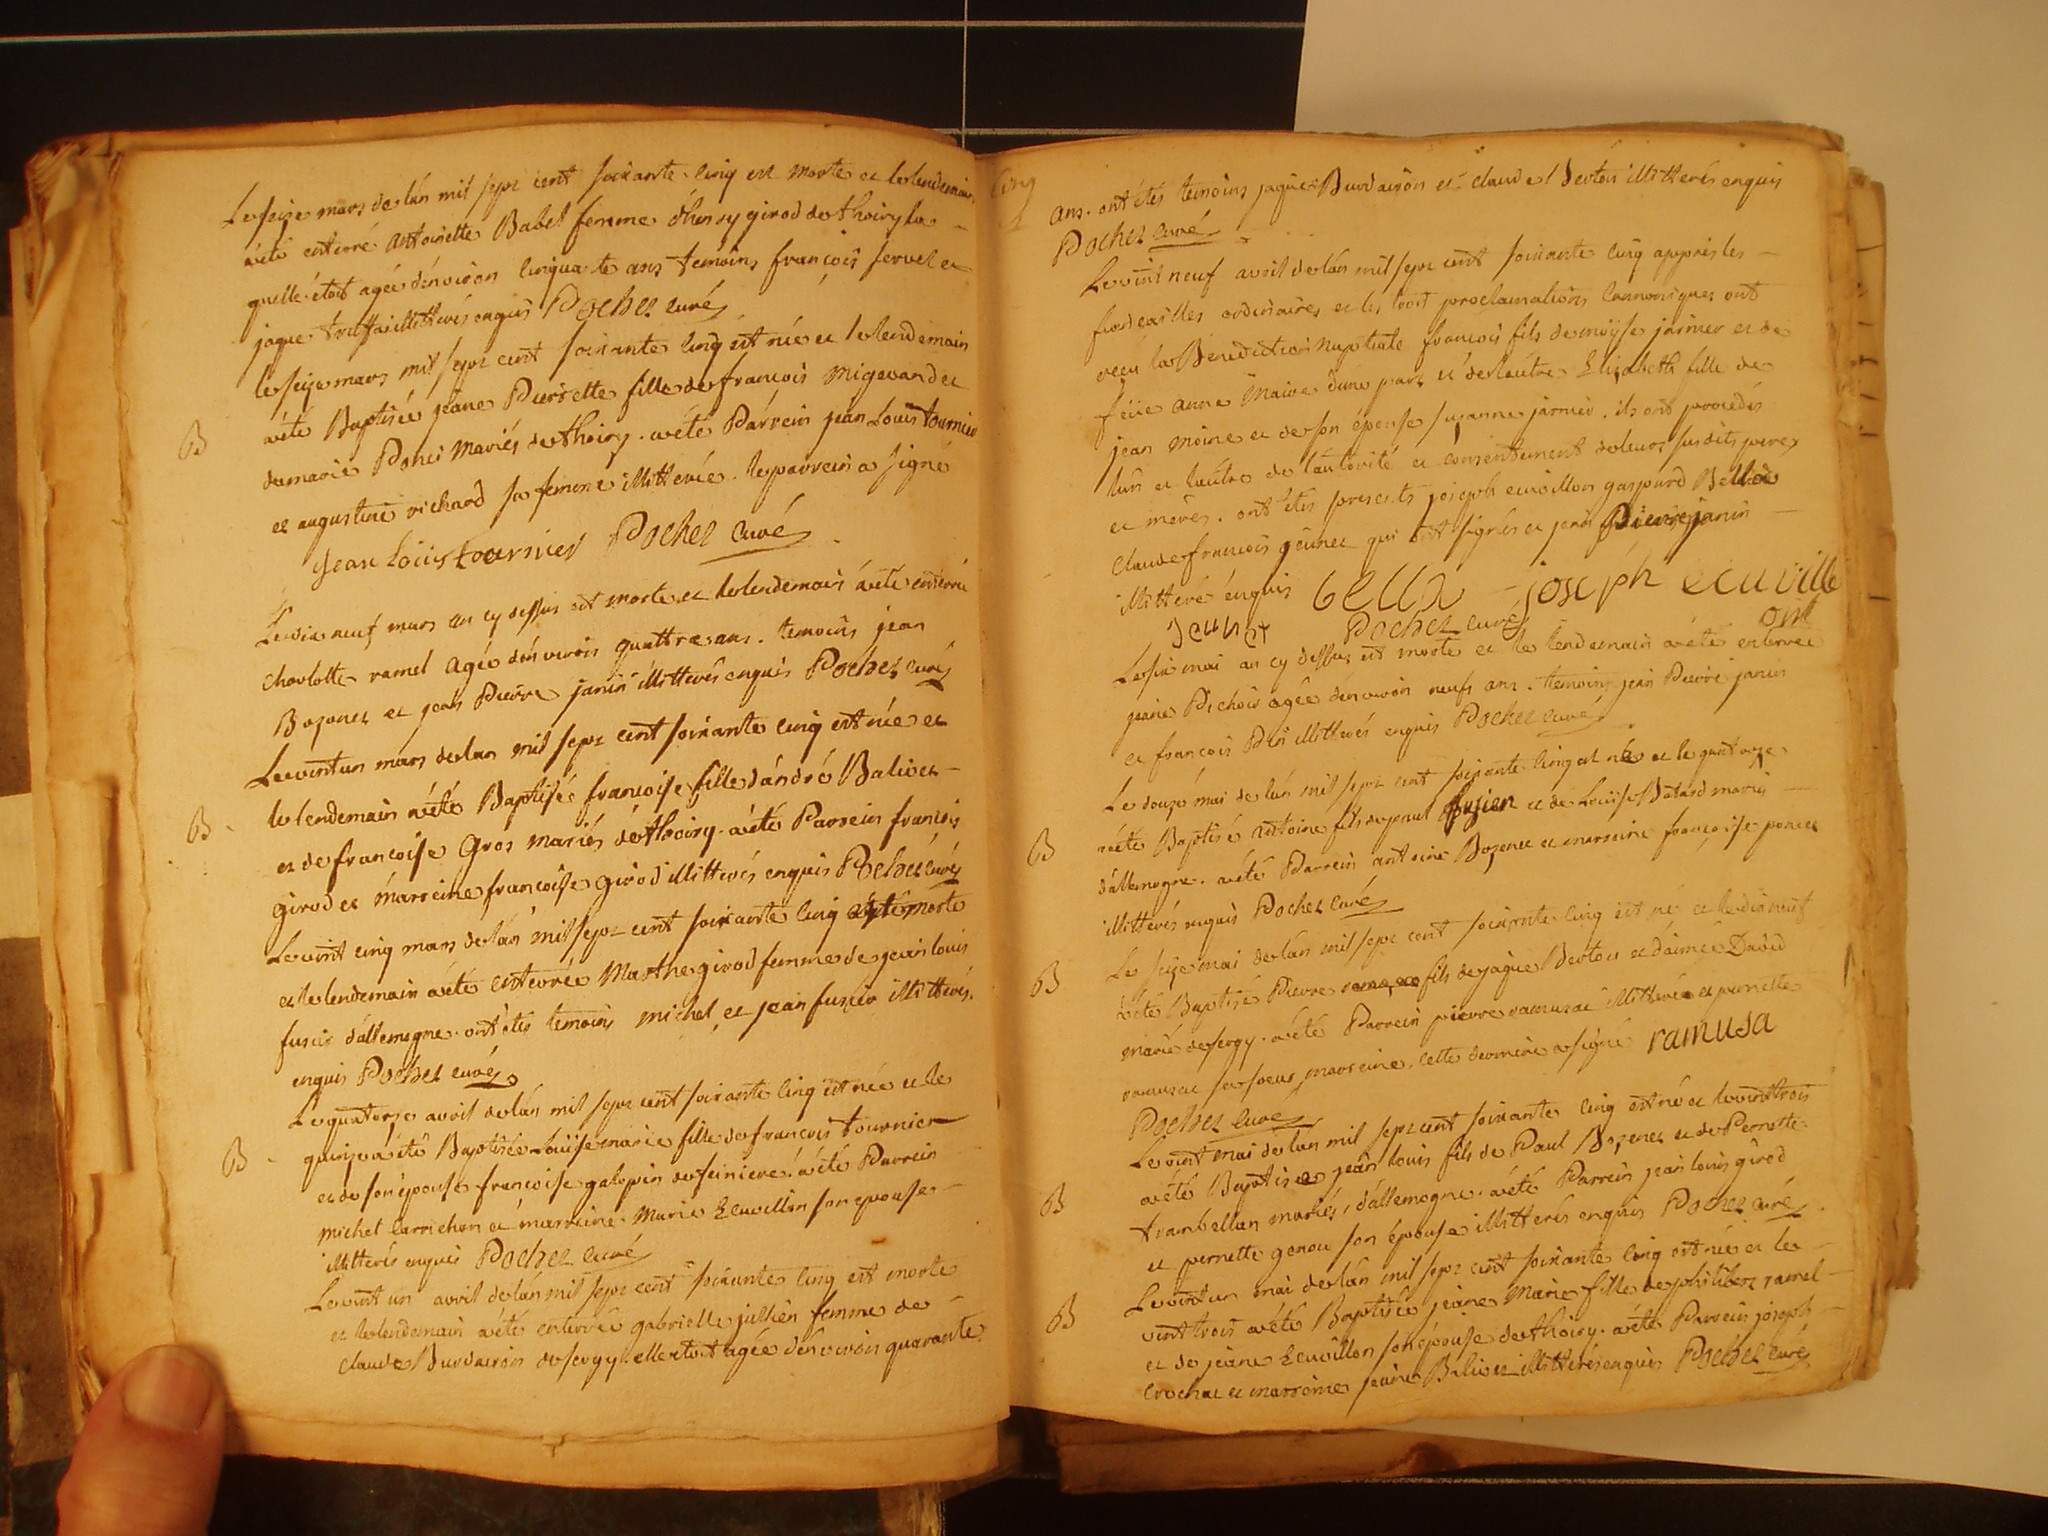 Le seize mars de lán mil sept cent soixante cinq est morte et le lendemain
àété enterré antoinette Babel femme d'henry girod de thoiry la
quelle étoit agée dénviron cinquante ans temoins françois servel et
jaque truffai illitterés enquis Pochet curé
le seize mars mil sept cent soixante cinq est née et le lendemain
B
àété Baptisée jeane Pierrette fille de francois migevand et
de marie Ponci mariés de thoiry. àété Párrein jean Louis tournier
et augustine richard sa femme illitterée. le parrein a signé
jean Loüis tournier Pochet curé
Le dix neuf mars an cy dessus est morte et le lendemain àété enterré
charlotte ramel agée dénviron quattre ans. temoins jean
Bozonet et jean Pierre janin illitterés enquis Pochet curé
Le vint un mars de lan mil sept cent soixante cinq est née et
B
le lendemain àété Baptisée francoise fille dándré Balivet
et de francoise Gros mariés de thoiry. àété Parrein francois
girod et marreine francoise girod illitterés enquis Pochet curé
Le vint cinq mars de lán mil sept cent soixante cinq morte
et le lendemain àété enterrée Marthe girod femme de jean louis
fusier dállemogne. ont étés temoins michel et jean fusier illitterés.
enquis Pochet curé
Le quatorze avril de lán mil sept cent soixante cinq est née et le
B
quinze àété Baptisée Loüise marie fille de francois tournier
et de son épouse francoise galopin de feiniere. àété Parrein
michel carrichon et marreine Marie Ecuvillon son epouse
illitterés enquis Pochet curé
Le vint un avril de lán mil sept cent soixante cinq est morte
et le lendemain àété enterrée gabrielle jullien femme de
claude Burdairon de sergy. elle étoit agée dénviron quarante
cinq
ans. ont étés temoins jaque Burdairon et claude Bertou illitterés enquis
Pochet curé
Le vint neuf avril de lán mil sept cent soixante cinq apprès les
fiancailles ordinaires et les trois proclamations cannoniques ont
recu la Benediction nuptiale francois fils de moÿse jarnier et de
feüe anne Maire dúne part et de láutre Elizabeth fille de
jean moine et de son épouse susanne jarnier. ils ont procedés
lún et láutre de láutorité et consentement de leurs susdits peres
et mères. ont étés presents joseph ecuvillon gaspard Bella
claude francois jeunet qui ont signés et jean Pierre janin
illitteré enquis bella joseph ecuville
ont
jeunet Pochet curé
Le six mai an cy dessus est morte et le lendemain àété enterrée
jeane Pichoir agée dénviron neufs ans. temoins jean Pierre janin
et francois Pin illitterés enquis Pochet curé
Le douze mai de lán mil sept cent soixante cinq est née et le quatorze
B
àété Baptisé antoine fils de paul fuzier et de Loüise Batard mariés
dállemogne. àété Parrein antoine Bozonet et marreine françoise poncet
illitterés enquis Pochet curé
Le seize mai de lán mil sept cent soixante cinq est né et le dix neuf
B
àété Baptisé Pierre fils de jaque Bertou et daimée David
mariés de sergy. àété Parrein pierre ramusat illitteré et pernette
ramusat sa soeur marreine. cette derniere a signé ramusa
Pochet curé
Le vint mai de lán mil sept cent soixante cinq est né et le vint trois
B
àété Baptisé jean louis fils de Paul Bozonet et de Pernette
trambellan mariés, dállemogne. àété Parrein jean louis girod
et pernette genou son épouse illitterés enquis Pochet curé
Le vint un mai de lán mil sept cent soixante cinq est née et le
B
vint trois àété Baptisée jeane Marie fille de philibert ramel
et de jeane Ecuvillon son épouse de thoiry. àété Parrein joseph
crochat et marreine jeane Balivet illitterés enquis Pochet curé